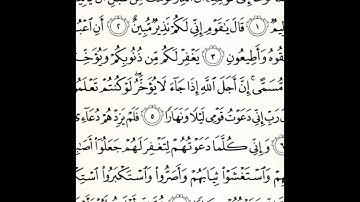 ـيمٌ ١ قَالَ يَـٰقَوْمِ إِنِّي لَكُمْ نَذِيرٌ مُّبِينٌ ٢ أَنِ اعْبُـ
ـقُوهُ وَأَطِيعُونِ ٣ يَغْفِرْ لَكُم مِّن ذُنُوبِكُمْ وَيُؤَخِّـ
مُّسَمًّى ۚ إِنَّ أَجَلَ اللَّهِ إِذَا جَاءَ لَا يُؤَخَّرُ ۖ لَوْ كُنتُمْ تَعْلَمُـ
رَبِّ إِنِّي دَعَوْتُ قَوْمِي لَيْلًا وَنَهَارًا ٥ فَلَمْ يَزِدْهُمْ دُعَاءِي
٦ وَإِنِّي كُلَّمَا دَعَوْتُهُمْ لِتَغْفِرَ لَهُمْ جَعَلُوا أَصَـٰ
ـهِمْ وَاسْتَغْشَوْا ثِيَابَهُمْ وَأَصَرُّوا وَاسْتَكْبَرُوا اسْتِكْـ